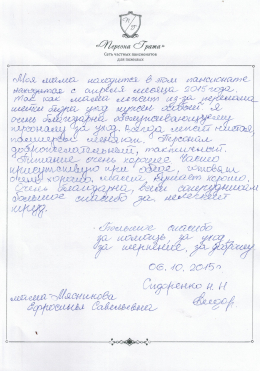 «Персона Грата»
Сеть частных пансионатов
для пожилых
«Моя мама находится в этом пансионате
находится с апреля месяца 2015 года.
Так как мама лежит из-за перелома
шейки бедра уход нужен особый. Я
очень благодарна обслуживающему
персоналу за уход. Всегда лежит чистая,
Персонал
доброжелательный, тактичный.
Питание очень хорошее. Часто
присутствую при обеде, готовят
очень хорошо, мамой, кушает хорошо.
Очень благодарна, всем сотрудникам
большое спасибо за нелегкий
труд.
Большое спасибо
за помощь, за уход,
за терпение, за доброту
06.10.2015г
Сидоренко Н.Н
мама-Мясникова
Ефросинья Савельевна